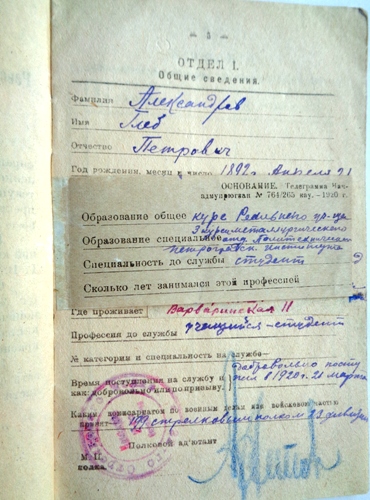 — 3 —
ОТДЕЛ I.
Общие сведения.
Фамилия Александров
Имя Глеб
Отчество Петрович
Год рождения, месяц и число 1892 г. Апреля 21
ОСНОВАНИЕ. Телеграмма
№ 764/265 1920 г.
Образование общее курс Реального
Образование специальное
Специальность до службы студент
Сколько лет занимался этой профессией
Где проживает Варваринская 11
Профессия до службы учащийся студент
№ категории и специальность на службе
Время поступления на службу и добровольно
как: добровольно или по призыву. в 1920 г. 21 марта
Каким комиссариатом по военным делам или войсковою частью
принят стрелковым полком 23
Полковой адъютант
М. П.
полка.